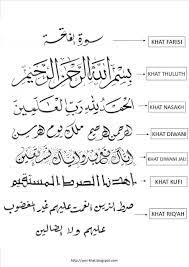 سورة الفاتحة
KHAT FARISI
بسم الله الرحمن الرحيم
KHAT THULUTH
الحمد لله رب العلمين
KHAT NASAKH
الرحمن الرحيم ملك يوم الدين
KHAT DIWANI
إياك نعبد وإياك نستعين
KHAT DIWANI JALI
اهدنا الصرط المستقيم
KHAT KUFI
صرط الذين أنعمت عليهم غير المغضوب
KHAT RIQ'AH
عليهم ولا الضالين